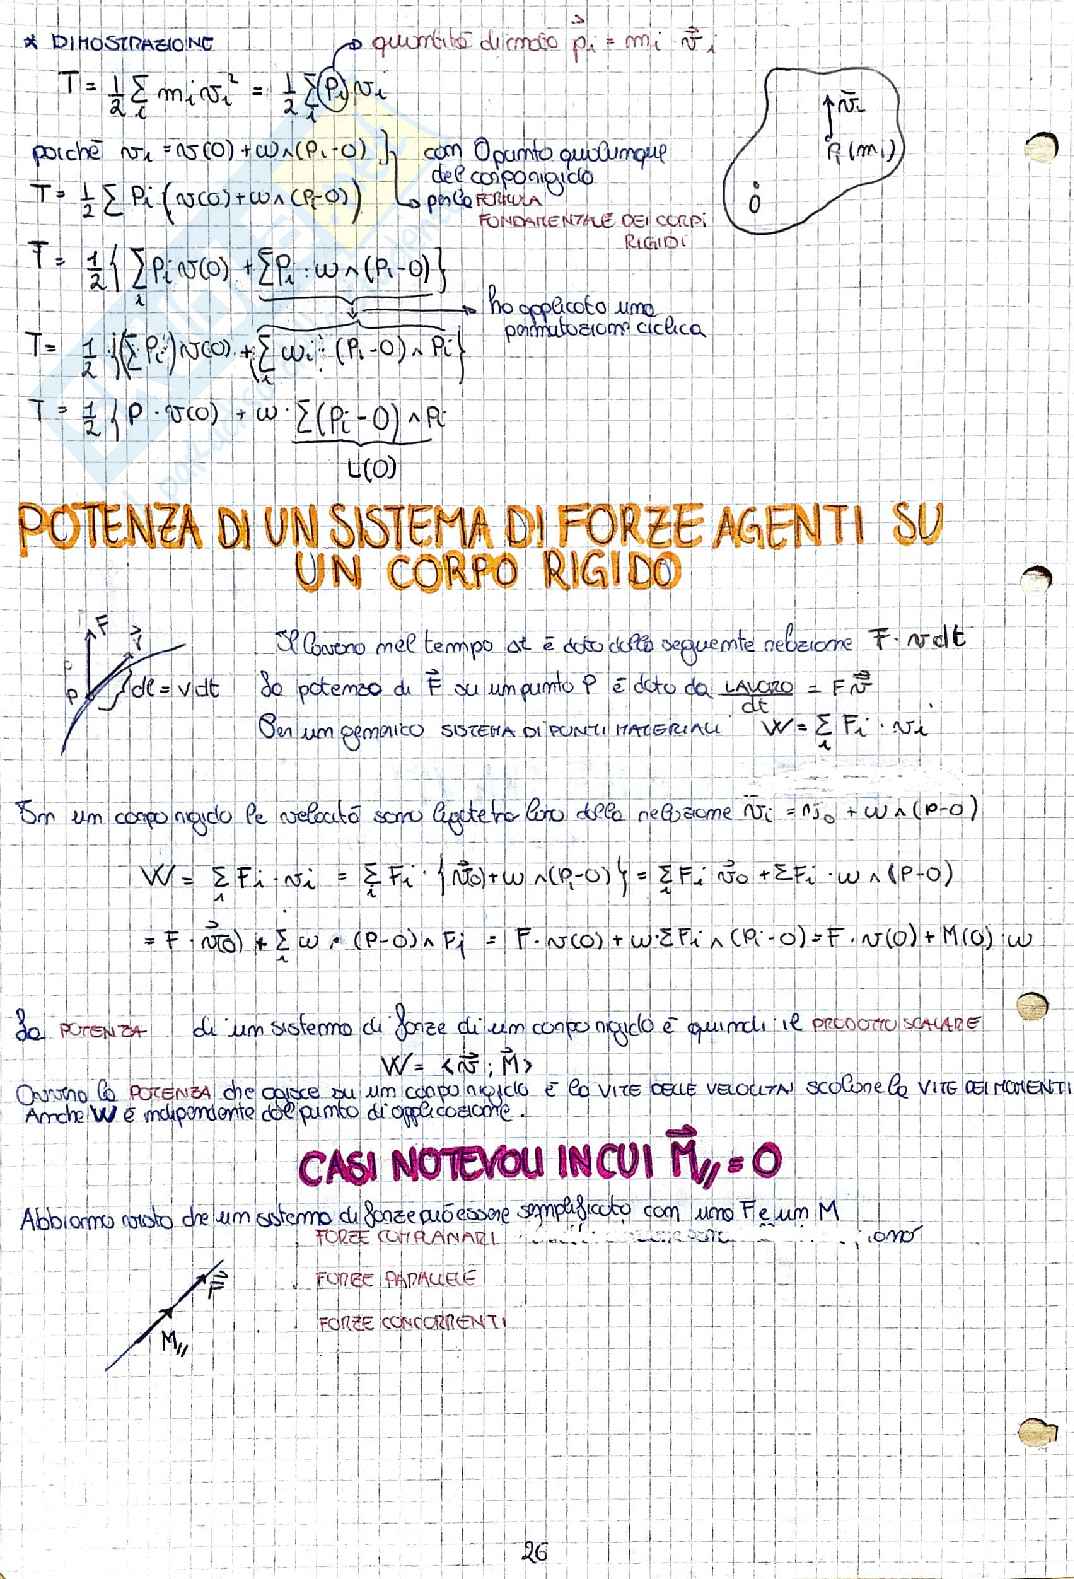 * DIMOSTRAZIONE
quantità di moto p⃗i = mi v⃗i
T = 1/2 Σi mi vi² = 1/2 Σi (Pi) vi
poiché vi = v(O) + ω∧(Pi-O) } con O punto qualunque
del corpo rigido
T = 1/2 Σ Pi (v(O) + ω∧(Pi-O)) → per la FORMULA
FONDAMENTALE DEI CORPI
RIGIDI
v̄i
Pi (mi)
O
T = 1/2 { Σi Pi v(O) + ΣPi · ω∧(Pi-O) }
ho applicato una
permutazione ciclica
T = 1/2 {(Σ Pi) v(O) + Σi ωi · (Pi-O) ∧ Pi }
T = 1/2 { P · v(O) + ω · Σ(Pi-O) ∧ Pi
L(O)
POTENZA DI UN SISTEMA DI FORZE AGENTI SU
UN CORPO RIGIDO
F
P
dl = v dt
Il lavoro nel tempo dt è dato dalla seguente relazione F · v dt
La potenza di F⃗ su un punto P è data da LAVORO/dt = F v⃗
Per un generico SISTEMA DI PUNTI MATERIALI W = Σi Fi · vi
In un corpo rigido le velocità sono legate tra loro dalla relazione v̄i = v0 + ω∧(P-O)
W = Σi Fi · vi = Σi Fi · { v⃗(O) + ω∧(Pi-O) } = Σi Fi v⃗0 + ΣFi · ω∧(P-O)
= F · v⃗(O) + Σi ω · (P-O)∧Fi = F · v(O) + ω · ΣFi∧(Pi-O) = F · v(O) + M(O) · ω
La POTENZA di un sistema di forze di un corpo rigido è quindi il PRODOTTO SCALARE
W = <v⃗ ; M⃗>
Ovvero la POTENZA che agisce su un corpo rigido è la VITE DELLE VELOCITA' scalare la VITE DEI MOMENTI
Anche W è indipendente dal punto di applicazione.
CASI NOTEVOLI IN CUI M⃗// = 0
Abbiamo visto che un sistema di forze può essere semplificato con una F e un M
FORZE COMPLANARI
F⃗
FORZE PARALLELE
FORZE CONCORRENTI
M//
26